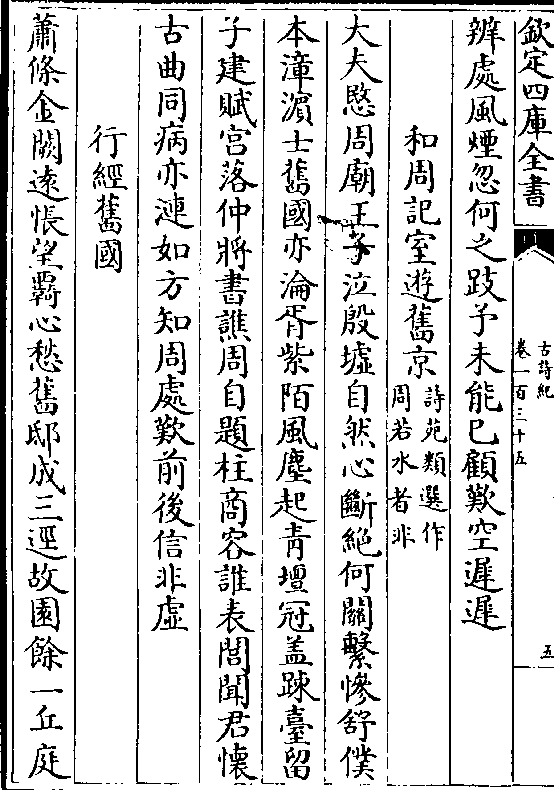 欽定四庫全書
古詩紀
卷一百三十五
五
辨處風煙忽何之跂予未能已顧歎空遲遲
和周記室遊舊京
詩苑類選作
周若水者非
大夫愍周廟王子泣殷墟自然心斷絶何關繫慘舒僕
本漳濵士舊國亦淪胥紫陌風塵起青壇冠盖踈臺留
子建賦宫落仲將書譙周自題柱商容誰表閭聞君懐
古曲同病亦漣如方知周處歎前後信非虛
行經舊國
蕭條金闕逺悵望羇心愁舊邸成三逕故園餘一丘庭